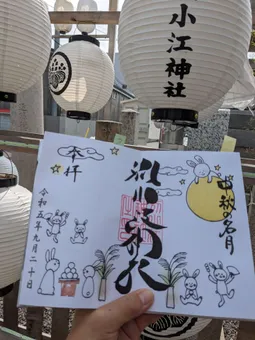 小江神社
中秋の名月
別小江神社
奉拝
令和五年九月二十日